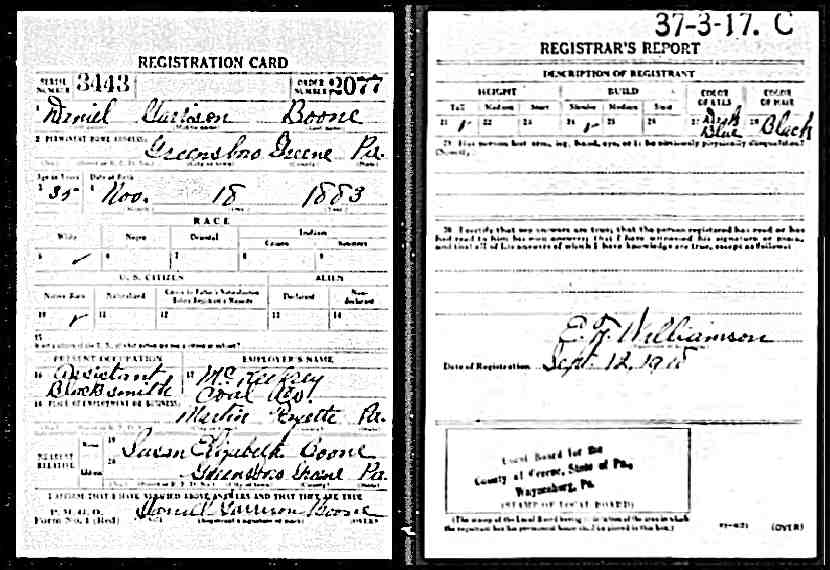 REGISTRATION CARD
SERIAL NUMBER 3443
ORDER NUMBER 2077
1 Daniel Garrison Boone
2 PERMANENT HOME ADDRESS:
Greensboro Greene Pa.
Age in Years Date of Birth
3 35 4 Nov. 18 1883
RACE
White Negro Oriental Indian
Citizen
5 ✓ 6 7 8 9
U. S. CITIZEN ALIEN
Native Born Naturalized Declared Non-declarant
10 ✓ 11 12 13 14
15
PRESENT OCCUPATION EMPLOYER'S NAME
16 Assistant Blacksmith 17
Coal
18 PLACE OF EMPLOYMENT OR BUSINESS:
Martin Fayette Pa.
NEAREST RELATIVE
Name 19 Susan Elizabeth Boone
Address 20 Greensboro Greene Pa.
I AFFIRM THAT I HAVE VERIFIED ABOVE ANSWERS AND THAT THEY ARE TRUE
P. M. G. O.
Form No. 1 (Red) Daniel Garrison Boone
(Registrant's signature or mark) (OVER)
37-3-17. C
REGISTRAR'S REPORT
DESCRIPTION OF REGISTRANT
HEIGHT BUILD COLOR OF EYES COLOR OF HAIR
Tall Medium Short Slender Medium Stout
21 ✓ 22 23 24 ✓ 25 26 27 Dark Blue 28 Black
29 Has person lost arm, leg, hand, eye, or is he obviously physically disqualified?
(Specify.)
30 I certify that my answers are true; that the person registered has read or has
had read to him his own answers; that I have witnessed his signature or mark,
and that all of his answers of which I have knowledge are true, except as follows:
Williamson
Date of Registration Sept. 12, 1918
Local Board for the
County of Greene, State of Pa.,
Waynesburg, Pa.
(STAMP OF LOCAL BOARD)
(The stamp of the Local Board having jurisdiction of the area in which
the registrant has his permanent home shall be placed in this box.)
(OVER)